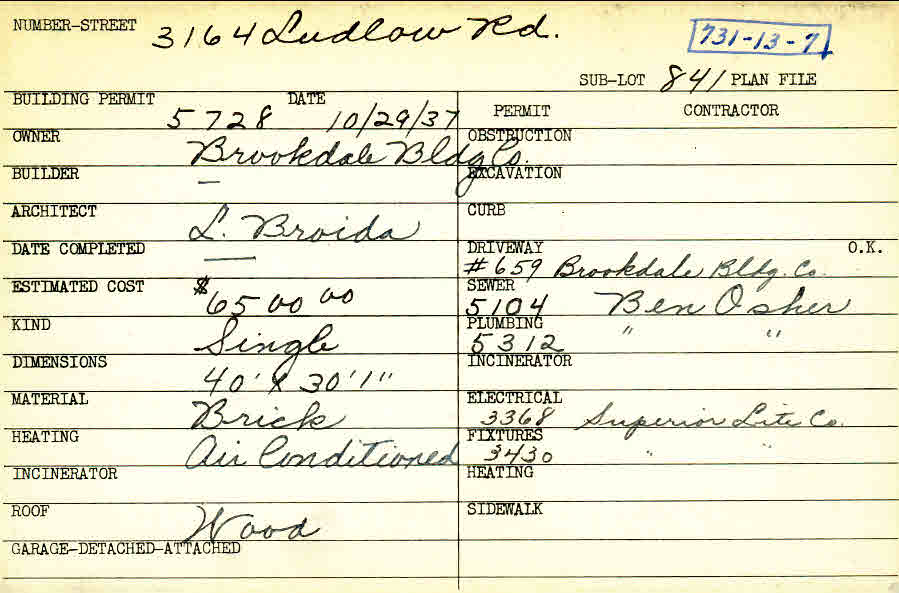 NUMBER-STREET 3164 Ludlow Rd. 731-13-7
SUB-LOT 841 PLAN FILE
BUILDING PERMIT 5728 DATE 10/29/37
OWNER Brookdale Bldg Co.
BUILDER —
ARCHITECT L. Broida
DATE COMPLETED —
ESTIMATED COST $6500 00
KIND Single
DIMENSIONS 40' x 30'1"
MATERIAL Brick
HEATING Air Conditioned
INCINERATOR
ROOF Wood
GARAGE-DETACHED-ATTACHED
PERMIT CONTRACTOR
OBSTRUCTION
EXCAVATION
CURB
DRIVEWAY O.K.
#659 Brookdale Bldg. Co.
SEWER
5104 Ben Osher
PLUMBING
5312 " "
INCINERATOR
ELECTRICAL
3368 Superior Lite Co.
FIXTURES
3430 " "
HEATING
SIDEWALK